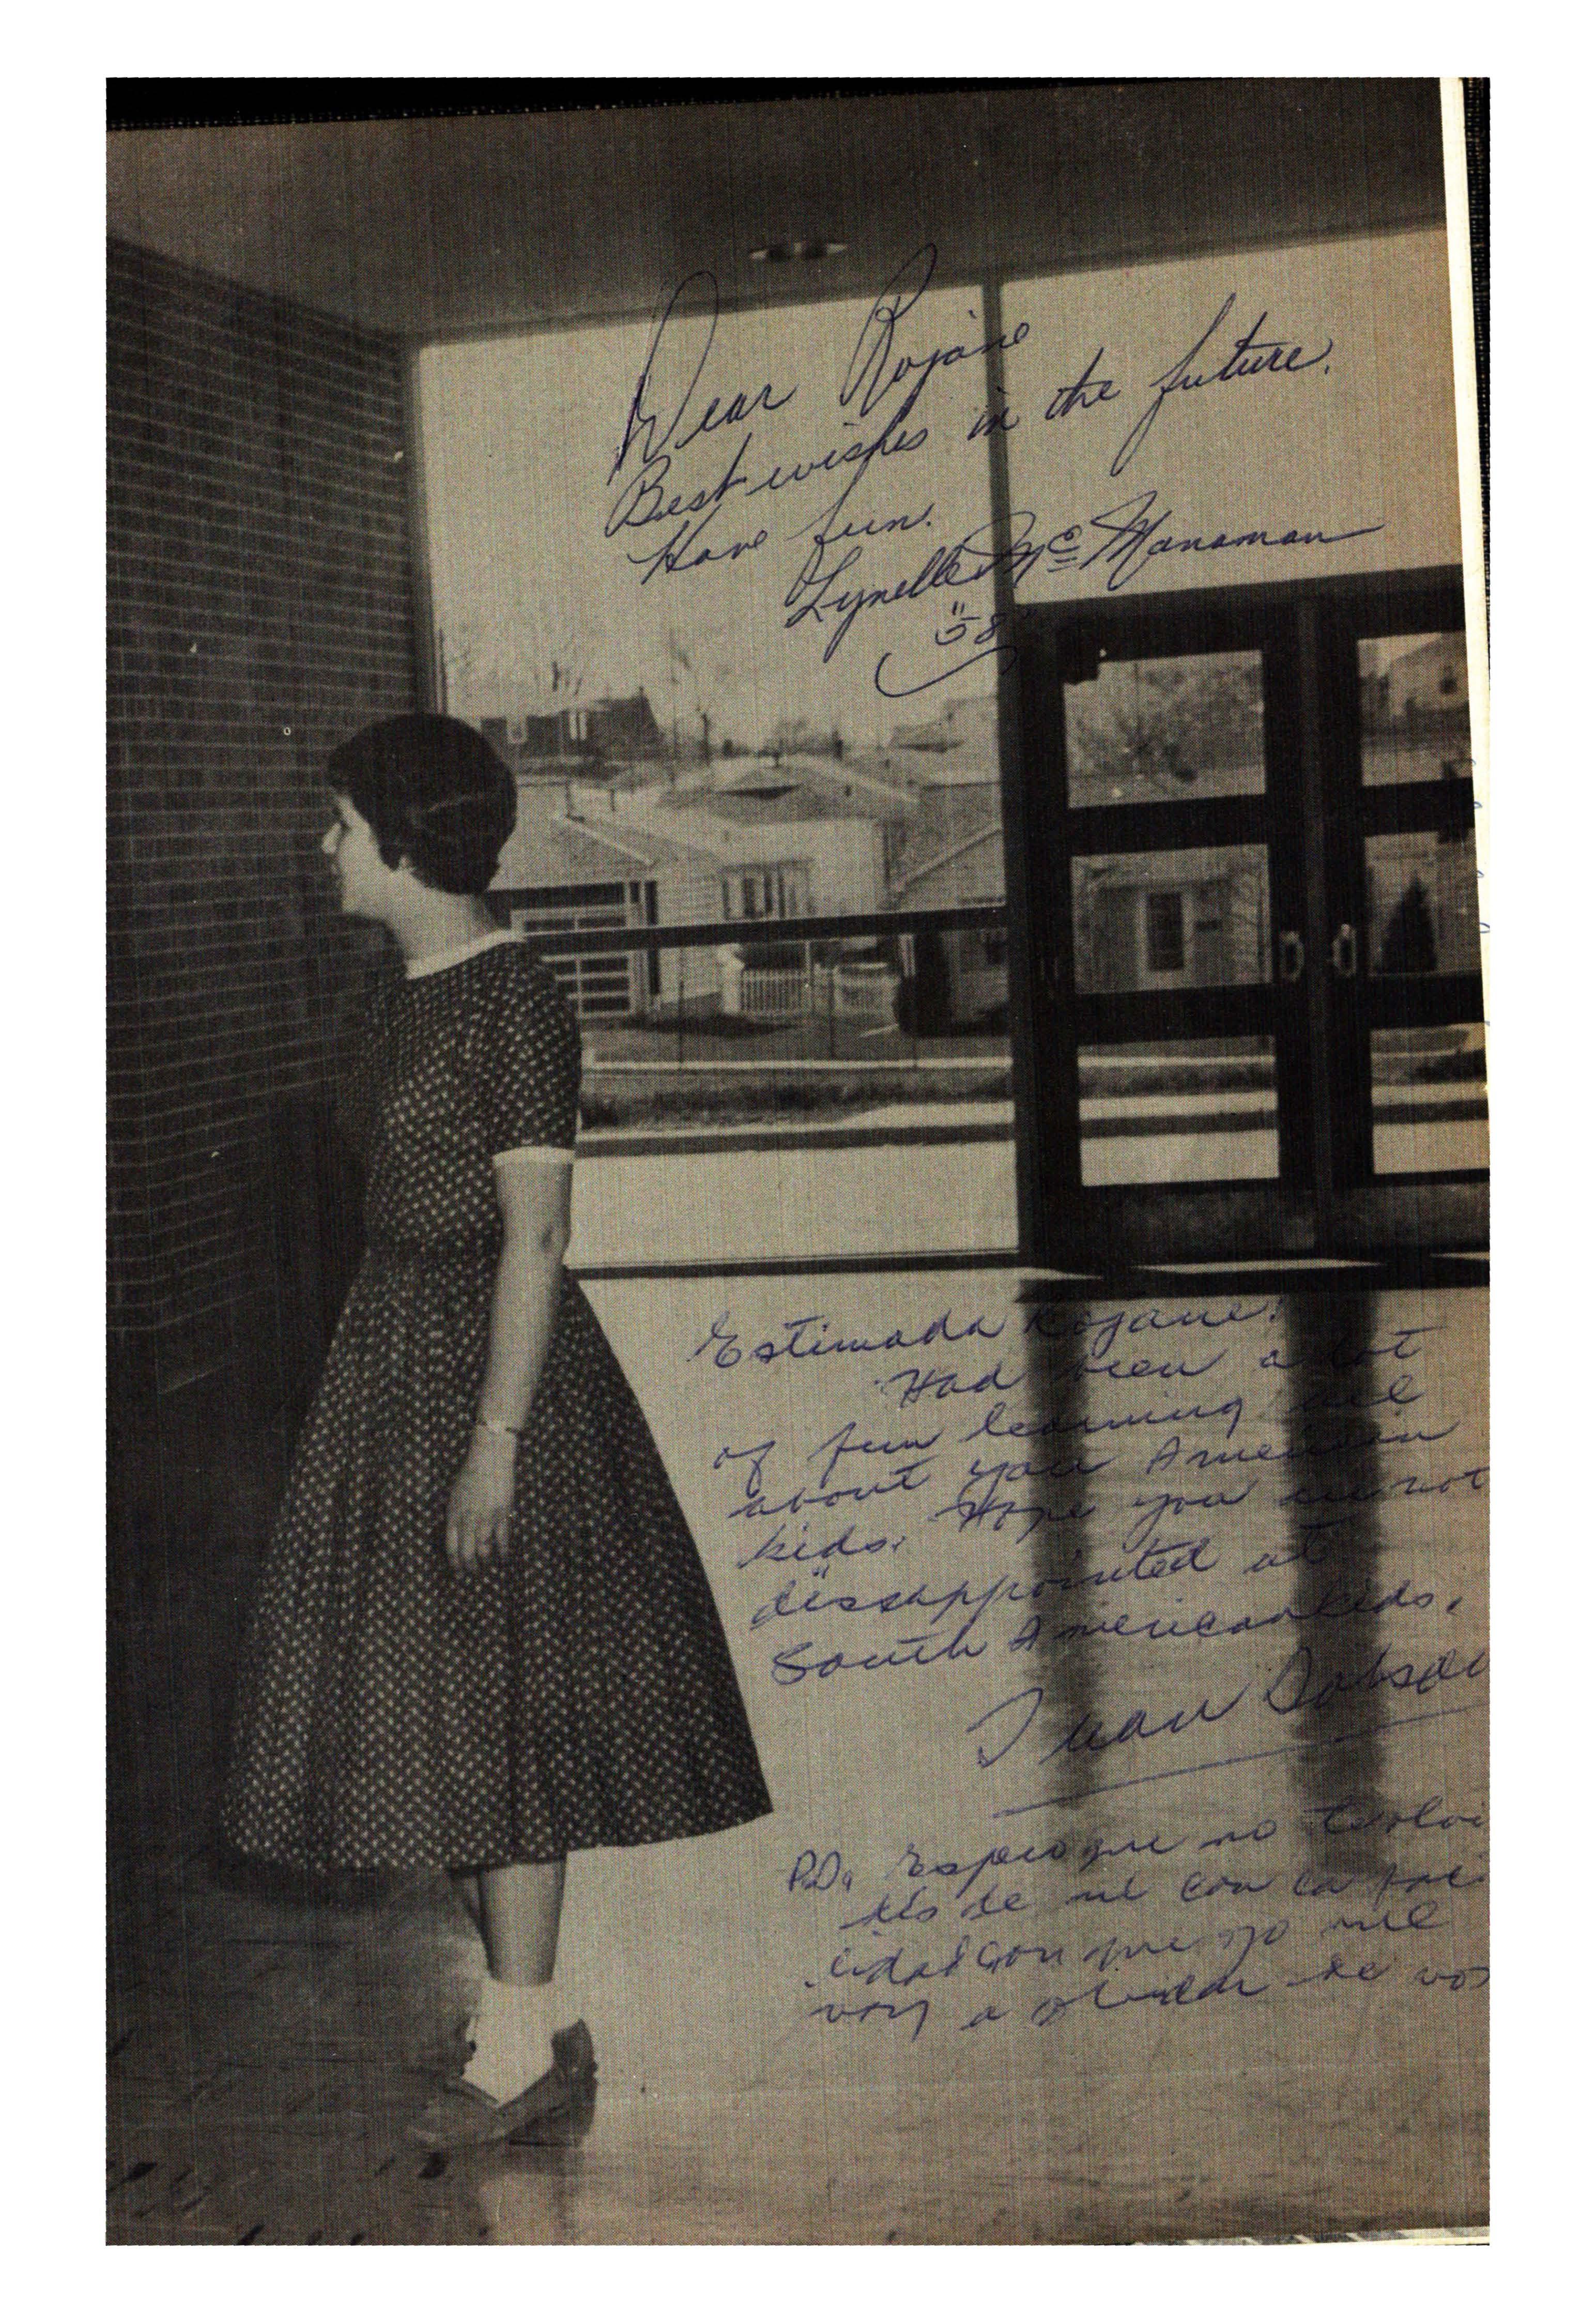 Dear Rojane
Best wishes in the future.
Have fun.
Lynelle Mc Manaman
"58"
Estimada Rojane:
Had been a lot
of fun learning all
about you American
kids. Hope you are not
dissappointed at
South American kids.
Juan Dobson
P.D. Espero que no te olvi
dés de mi con la faci
lidad con que yo me
voy a olvidar de vos